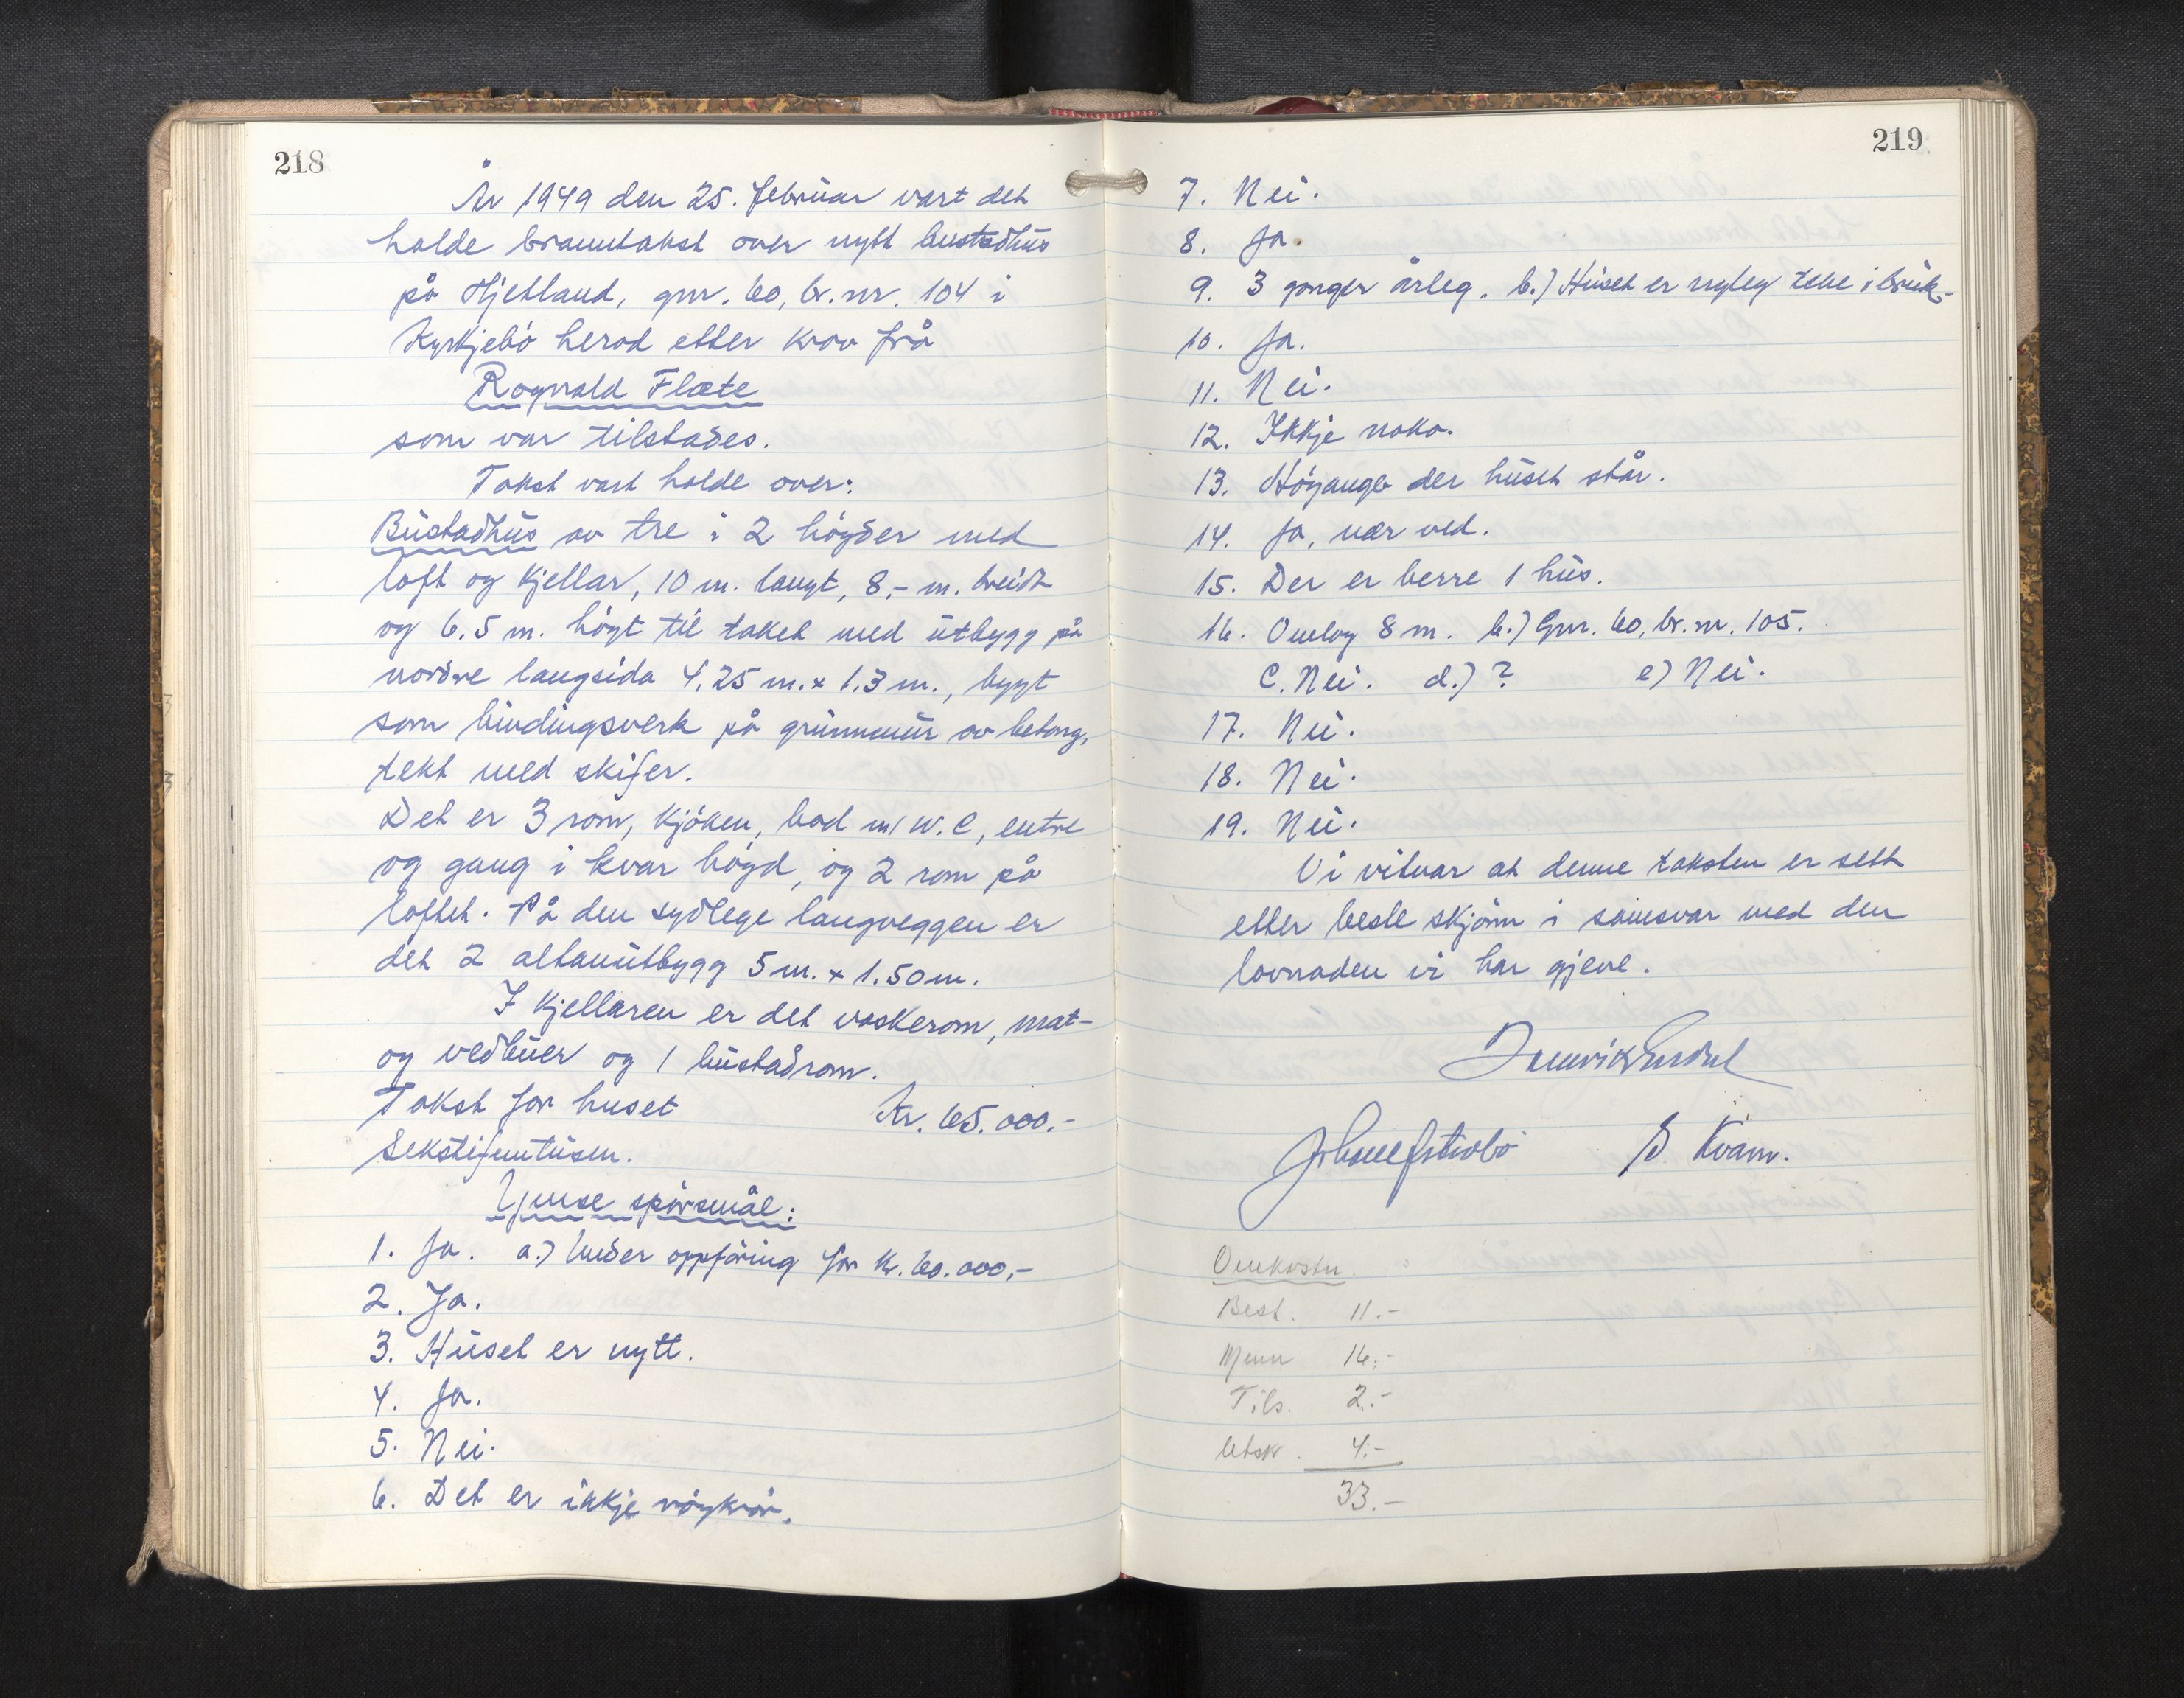 218
År 1949 den 25. februar vart det
halde branntakst over nytt bustadhus
på Hjetland, gnr. 60, br. nr. 104 i
Kyrkjebö herad etter krav frå
Rognald Flæte
som var tilstades.
Takst vart halde over:
Bustadhus av tre i 2 högder med
loft og kjellar, 10 m. langt, 8,- m. breidt
og 6.5 m. högt til taket med utbygg på
nordre langsida 4,25 m. x 1.3 m., bygt
som bindingsverk på grunnmur av betong,
tekt med skifer.
Det er 3 rom, kjöken, bad m/ W.C, entre
og gang i kvar högd, og 2 rom på
loftet. På den sydlege langveggen er
det 2 altanutbygg 5 m. x 1.50 m.
I kjellaren er det vaskerom, mat-
og vedbuer og 1 bustadrom.
Takst for huset Kr. 65.000.-
Sekstifemtusen.
Ymse spörsmål:
1. Ja. a.) Under oppföring for kr. 60.000,-
2. Ja.
3. Huset er nytt.
4. Ja.
5. Nei.
6. Det er ikkje röykrör.
219
7. Nei.
8. Ja.
9. 3 gonger årleg. b.) Huset er nyleg teke i bruk.
10. Ja.
11. Nei.
12. Ikkje noko.
13. Höyanger der huset står.
14. Ja, nær ved.
15. Der er berre 1 hus.
16. Omlag 8 m. b.) Gnr. 60, br. nr. 105.
C. Nei. d.) ? e) Nei.
17. Nei.
18. Nei.
19. Nei.
Vi vitnar at denne taksten er sett
etter beste skjönn i samsvar med den
lovnaden vi har gjeve.
S Kvam.
Omkostn.
Best. 11.-
Menn 16,-
Tils. 2.-
Utskr. 4.-
33.-